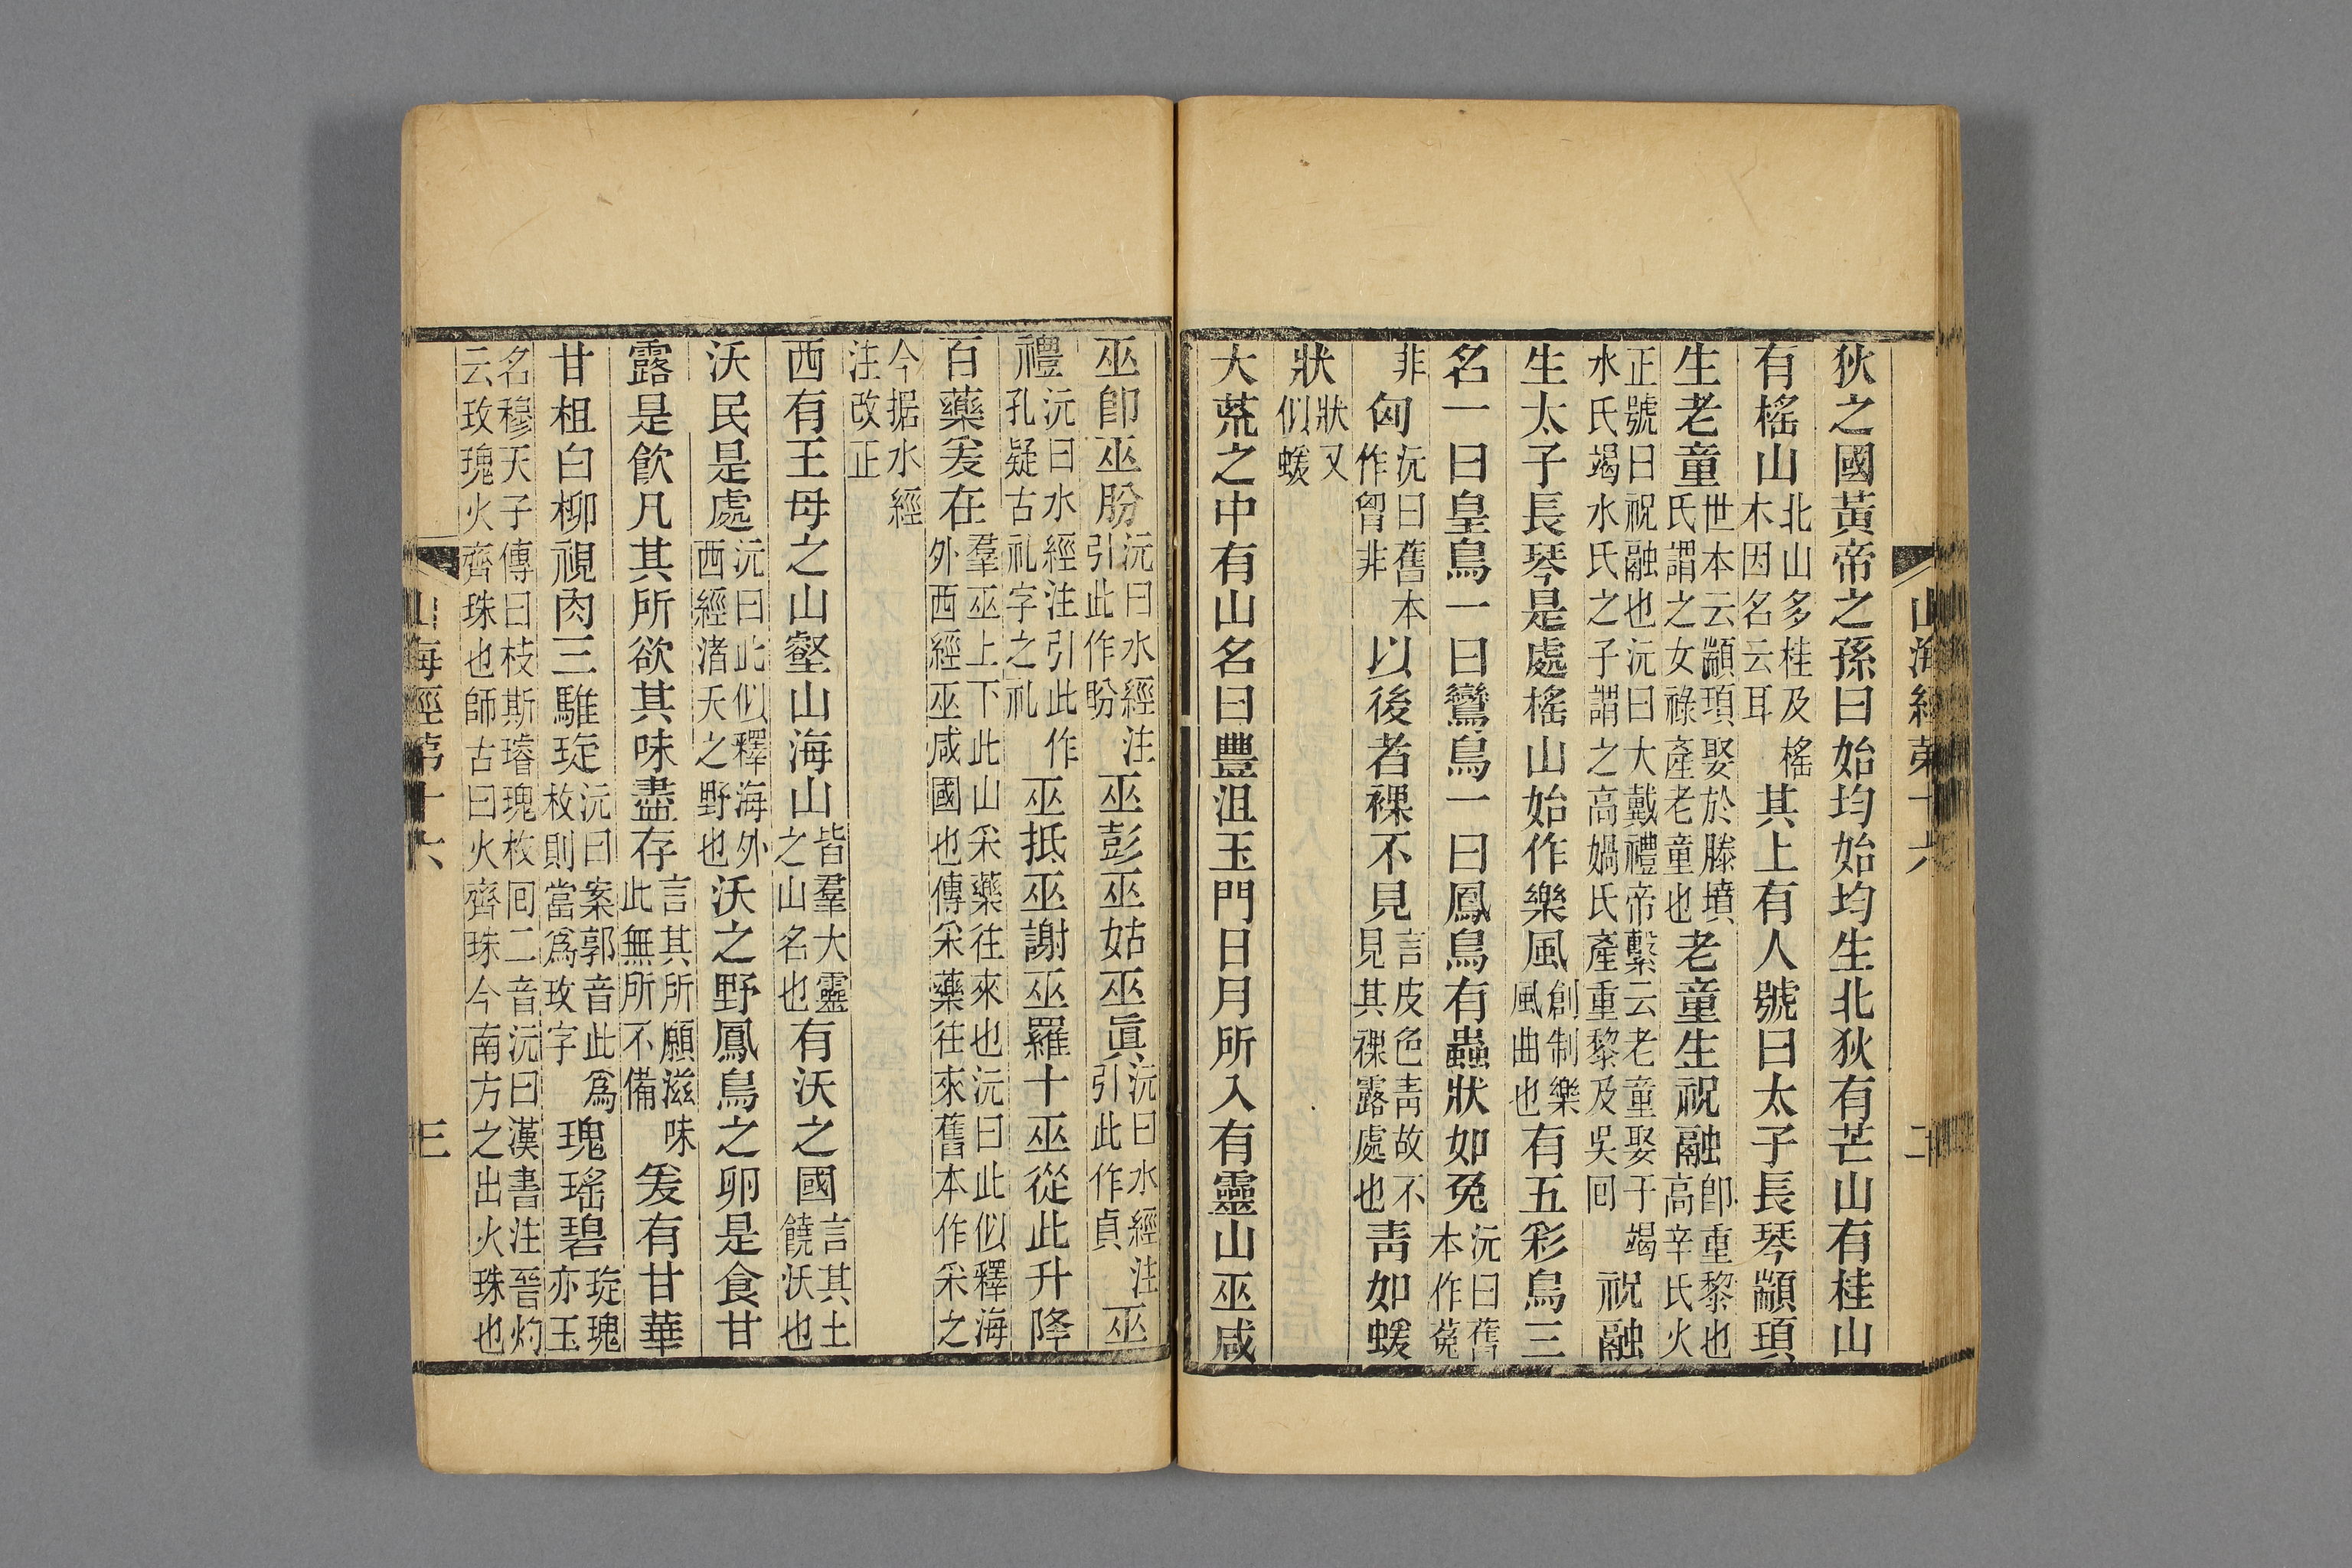 山海經第十六
二
狄之國黃帝之孫曰始均始均生北狄有芒山有桂山
有榣山北山多桂及榣木因名云耳其上有人號曰太子長琴顓頊
生老童世本云顓頊娶於滕墳氏謂之女祿產老童也老童生祝融卽重黎也高辛氏火
正號曰祝融也沅曰大戴禮帝繫云老童娶于竭水氏竭水氏之子謂之高媧氏產重黎及吳回祝融
生太子長琴是處榣山始作樂風創制樂風曲也有五彩鳥三
名一曰皇鳥一曰鸞鳥一曰鳳鳥有蟲狀如兔沅曰舊本作菟
非匈沅曰舊本作曾非以後者裸不見言皮色青故不見其裸露處也青如蝯
狀狀又似蝯
大荒之中有山名曰豐沮玉門日月所入有靈山巫咸
巫卽巫朌沅曰水經注引此作盼巫彭巫姑巫眞沅曰水經注引此作貞巫
禮沅曰水經注引此作孔疑古礼字之礼巫抵巫謝巫羅十巫從此升降
百藥爰在羣巫上下此山采藥往來也沅曰此似釋海外西經巫咸國也傳采藥往來舊本作采之
今据水經注改正
西有王母之山壑山海山皆羣大靈之山名也有沃之國言其土饒沃也
沃民是處沅曰此似釋海外西經渚夭之野也沃之野鳳鳥之卵是食甘
露是飮凡其所欲其味盡存言其所願滋味此無所不備爰有甘華
甘柤白柳視肉三騅琁沅曰案郭音此爲枚則當爲玫字瑰瑤碧琁瑰亦玉
名穆天子傳曰枝斯璿瑰枚回二音沅曰漢書注晉灼云玫瑰火齊珠也師古曰火齊珠今南方之出火珠也
山海經第十六
三